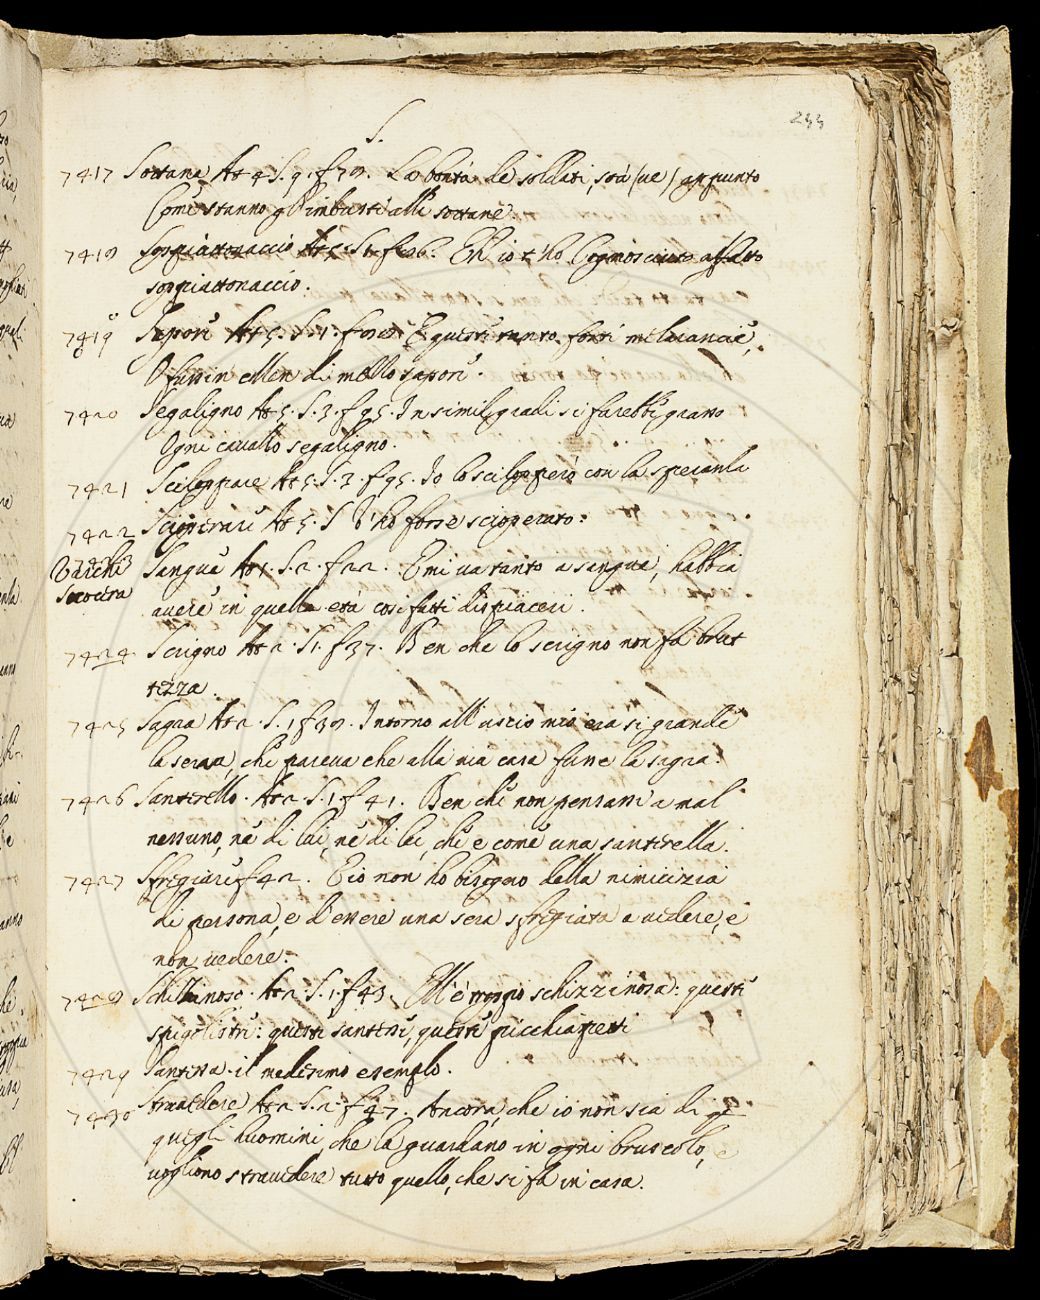 S.
244
7417 Sottana At 4. S. 9. f 79. La bontà de soldati, stà (ve) appunto
Come stanno gl'imbusti alle sottane
7418 Soppiattonaccio At 5. S 1. f 86. Eh io t'hò Cognosciuto affatto
soppiattonaccio.
7419 Sapori At 5. S. 1. f E questi tanto forti melarancie,
O fussin ellen di mello sapori.
7420 Segaligno At 5. S. 3. f 95. In simil gradi si farebbe grasso
Ogni cavallo segaligno.
7421 Sciloppare At 5. S. 3. f 95. Io lo scilopperò con la speranza
7422 Scioperare At 5. S I' ho forse scioperato:
7423 Varchi Suocera
Sangue At 1. S. 2. f 22. E mi va tanto a sangue, habbia
avere in quella età cosi fatti dispiaceri.
7424 Scrigno At 2. S 1. f 37. Ben che lo scrigno non fà brut
tezza.
7425 Sagra At 2. S. 1 f 39. Intorno all'uscio mio era si grande
la serra, che pareva che alla mia casa fusse la sagra.
7426 Santerello. At 2. S. 1. f 41. Ben che non pensassi a mal
nessuno, nè di lui, nè di lei, che è come una santerella.
7427 Sfregiare f 42. E io non hò bisogno della nimicizia
di persona, e d'essere una sera sfregiata a vedere, e
non vedere.
7428 Schizzinoso. At 2. S. 1. f 43. Ell'è troppo schizzinosa: queste
spigolistre: queste santesse, queste picchiapetti
7429 Santessa. il medesimo esemplo.
7430 Stravedere At 2. S. 2. f 47. Ancora, che io non sia di
quegli huomini, che la guardano in ogni bruscolo, e
vogliono stravedere tutto quello, che si fà in casa.